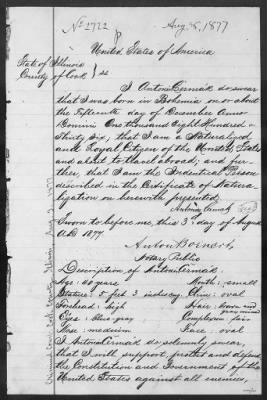 No 2722
Aug. 8, 1877
United States of America
State of Illinois
County of Cook } ss
I Anton Cermak do swear
that I was born in Bohemia on or about
the Fifteenth day of December Anno
Domini One thousand Eight Hundred &
Thirty Six; that I am a Naturalized
and Loyal Citizen of the United States
and about to travel abroad; and fur-
ther, that I am the Indentical Person
described in the Certificate of Natura-
lization on herewith presented.
Antonin Cermak
Sworn to before me, this 3d day of August
A.D. 1877.
Anton Boenert
Notary Public
Description of Anton Cermak:
Age: 40 years Mouth: small
Stature: 5 feet 3 inches eng. Chin: oval
Forehead: high Hair: brown and gray mixed
Eyes: blue-gray Complexion: fair
Nose: medium Face: oval
I Anton Cermak do solemnly swear,
that I will support, protect and defend
the Constitution and Government of the
United States against all enemies,